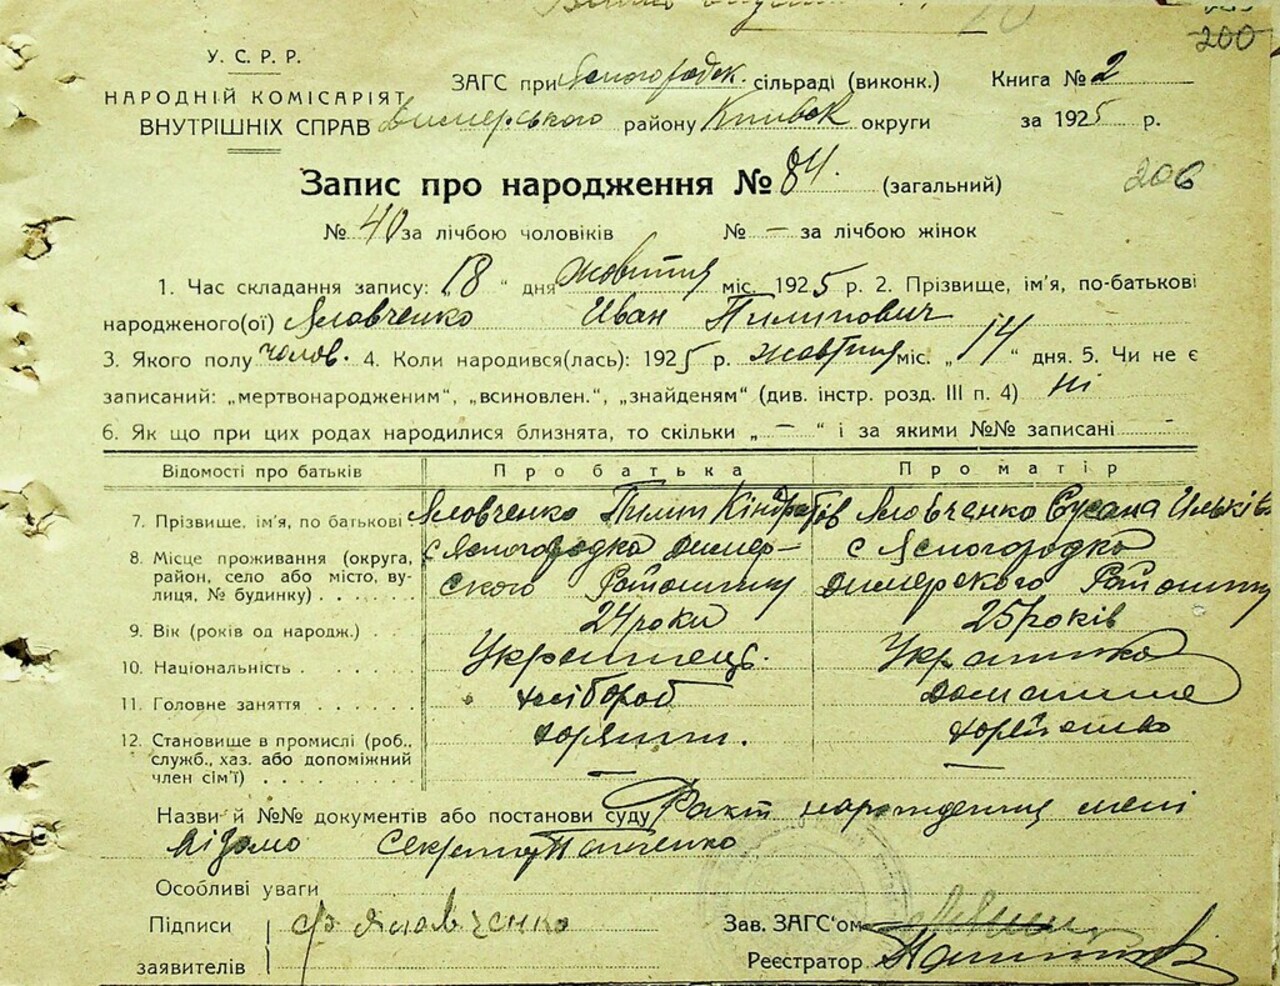 200
У. С. Р. Р.
НАРОДНІЙ КОМІСАРІЯТ
ВНУТРІШНІХ СПРАВ
ЗАГС при Ясногородск. сільраді (виконк.)
Димерського району Київськ округи
Книга № 2
за 1925 р.
Запис про народження № 84. (загальний)
206
№ 40 за лічбою чоловіків № — за лічбою жінок
1. Час складання запису: „18“ дня жовтня міс. 1925 р. 2. Прізвище, ім'я, по-батькові
народженого(ої) Яловченко Иван Пилипович
3. Якого полу чолов. 4. Коли народився(лась): 1925 р. жовтня міс. „14“ дня. 5. Чи не є
записаний: „мертвонародженим“, „всиновлен.“, „знайденям“ (див. інстр. розд. III п. 4) Ні
6. Як що при цих родах народилися близнята, то скільки „—“ і за якими №№ записані -
Відомості про батьків Про батька Про матір
7. Прізвище, ім'я, по батькові Яловченко Пилип Кіндратів Яловченко Сусана Ильківа
8. Місце проживання (округа, район, село або місто, вулиця, № будинку) с Ясногородка Димерського Района с Ясногородка Димерского Района
9. Вік (років од народж.) 24 роки 25 років
10. Національність Українець. Українка
11. Головне заняття хлібороб домашнє
12. Становище в промислі (роб., служб., хаз. або допоміжний член сім'ї) —
Назви й №№ документів або постанови суду Факт народження мені
відомо Секретар
Особліві уваги
Підписи Ф Яловченко Зав. ЗАГС'ом
заявителів Реєстратор